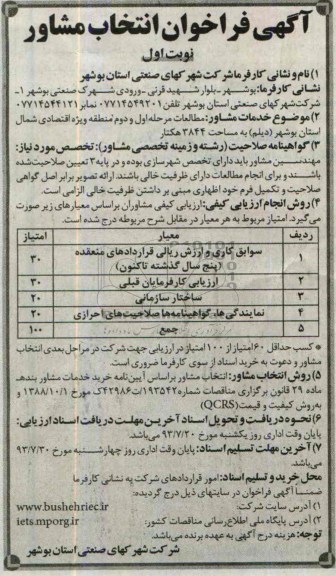 آگهی فراخوان انتخاب مشاور
نوبت اول
۱) نام و نشانی کارفرما: شرکت شهرکهای صنعتی استان بوشهر
نشانی کارفرما: بوشهر - بلوار شهید قرنی - ورودی شهرک صنعتی بوشهر ۱ -
شرکت شهرکهای صنعتی استان بوشهر تلفن ۰۷۷۱۴۵۴۹۲۰۱ نمابر ۰۷۷۱۴۵۴۴۱۲۱
۲) موضوع خدمات مشاور: مطالعات مرحله اول و دوم منطقه ویژه اقتصادی شمال
استان بوشهر (دیلم) به مساحت ۳۸۴۴ هکتار
۳) گواهینامه صلاحیت (رشته و زمینه تخصصی مشاور): تخصص مورد نیاز:
مهندسین مشاور باید دارای تخصص شهرسازی بوده و در پایه ۳ تعیین صلاحیت شده
باشند و برای انجام مطالعات دارای ظرفیت خالی باشند. ارائه تصویر برابر اصل گواهی
صلاحیت و تکمیل فرم خود اظهاری مبنی بر داشتن ظرفیت خالی الزامی است.
۴) روش انجام ارزیابی کیفی: ارزیابی کیفی مشاوران براساس معیارهای زیر صورت
می‌گیرد. امتیاز مربوط به هر معیار در مقابل شرح مربوطه درج شده است.
ردیف معیار امتیاز
۱ سوابق کاری و ارزش ریالی قراردادهای منعقده (پنج سال گذشته تاکنون) ۳۰
۲ ارزیابی کارفرمایان قبلی ۳۰
۳ ساختار سازمانی ۲۰
۴ نمایندگی‌ها، گواهینامه‌ها صلاحیت‌های احرازی ۲۰
۵ جمع ۱۰۰
* کسب حداقل ۶۰ امتیاز از ۱۰۰ امتیاز در ارزیابی جهت شرکت در مراحل بعدی انتخاب
مشاور و دعوت به خرید اسناد از سوی کارفرما ضروری است.
۵) روش انتخاب مشاور: انتخاب مشاور براساس آیین‌نامه خرید خدمات مشاور بند هـ
ماده ۲۹ قانون برگزاری مناقصات شماره ۱۹۳۵۴۲/ت۴۲۹۸۶ک مورخ ۱۳۸۸/۱۰/۱
به روش کیفیت و قیمت (QCRS)
۶) نحوه دریافت و تحویل اسناد آخرین مهلت دریافت اسناد ارزیابی:
پایان وقت اداری روز یکشنبه مورخ ۹۳/۷/۲۰ می‌باشد.
۷) آخرین مهلت تسلیم اسناد: پایان وقت اداری روز چهارشنبه مورخ ۹۳/۷/۳۰
می‌باشد.
محل خرید و تسلیم اسناد: امور قراردادهای شرکت به نشانی کارفرما
ضمناً آگهی فراخوان در سایتهای ذیل درج گردیده:
۱) آدرس سایت شرکت: www.bushehriec.ir
۲) آدرس پایگاه ملی اطلاع‌رسانی مناقصات کشور: iets.mporg.ir
توجه: هزینه درج آگهی به عهده برنده می‌باشد.
شرکت شهرکهای صنعتی استان بوشهر